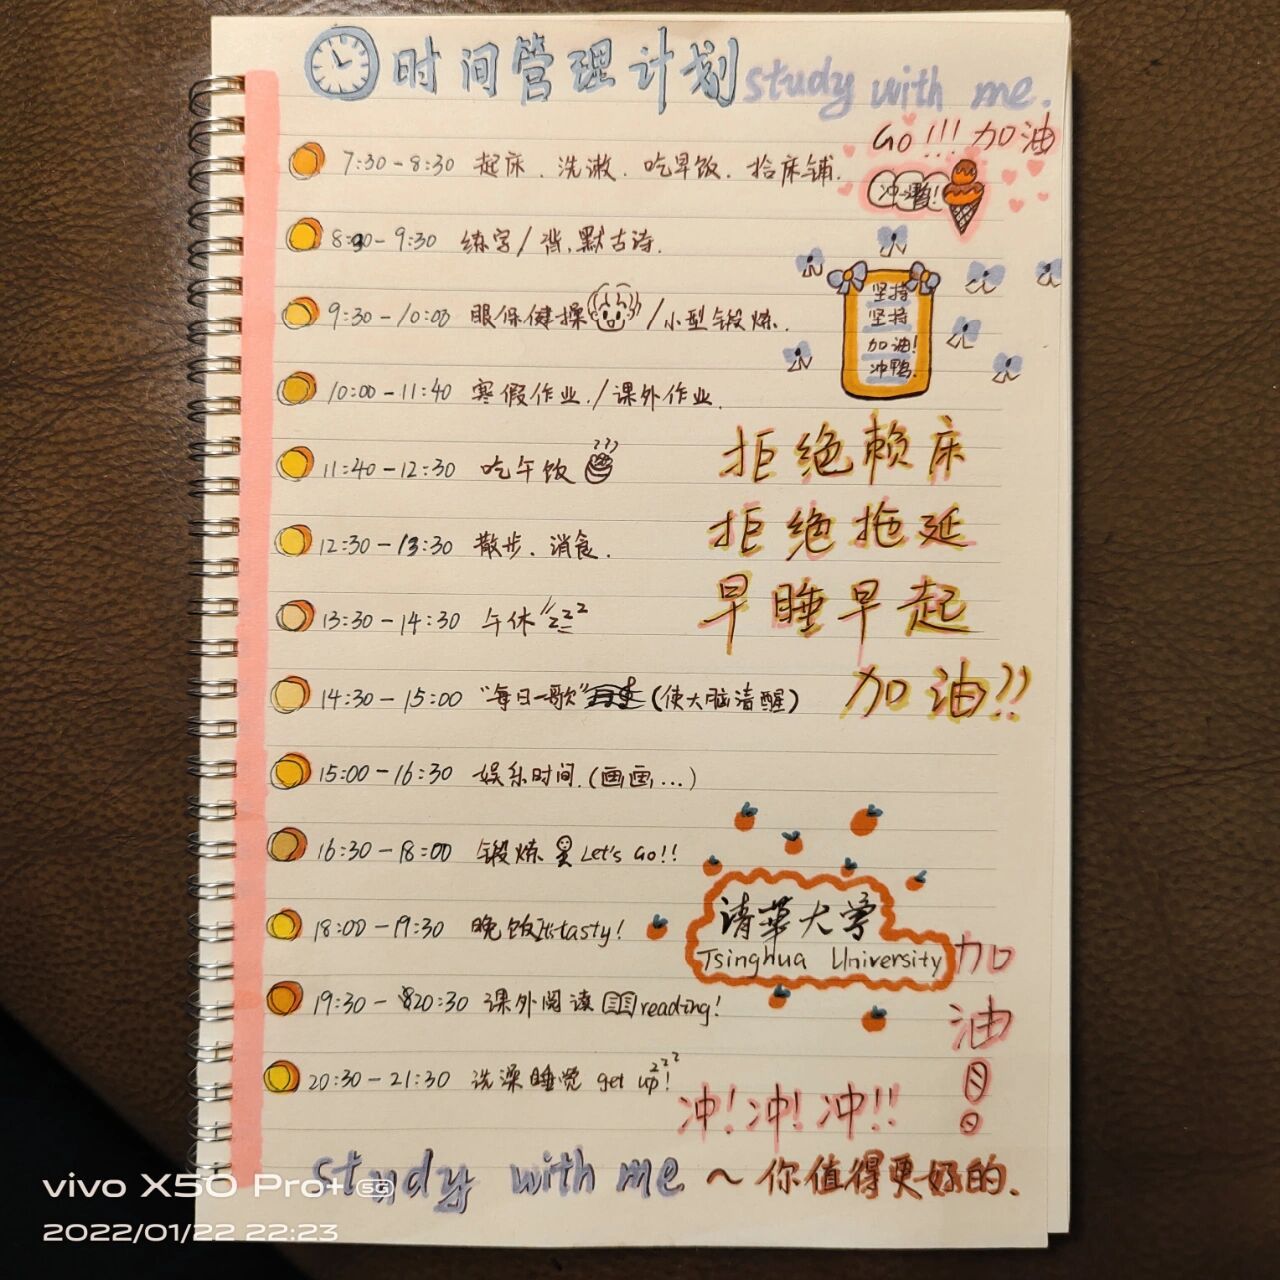 时间管理计划 study with me.
Go!!! 加油
7:30-8:30 起床、洗漱、吃早饭、拾床铺.
冲鸭!
8:30-9:30 练字/背、默古诗.
9:30-10:00 眼保健操/小型锻炼.
坚持
坚持
加油!
冲鸭.
10:00-11:40 寒假作业./课外作业.
拒绝赖床
11:40-12:30 吃午饭
12:30-13:30 散步、消食.
拒绝拖延
13:30-14:30 午休 zzz
早睡早起
14:30-15:00 "每日一歌"(使大脑清醒)
加油!!
15:00-16:30 娱乐时间.(画画...)
16:30-18:00 锻炼 Let's Go!!
18:00-19:30 晚饭 It's tasty!
清華大学
Tsinghua University
19:30-20:30 课外阅读 reading!
加油!
20:30-21:30 洗澡睡觉 get up! zzz
冲!冲!冲!!
study with me ~你值得更好的.
vivo X50 Pro+ 5G
2022/01/22 22:23